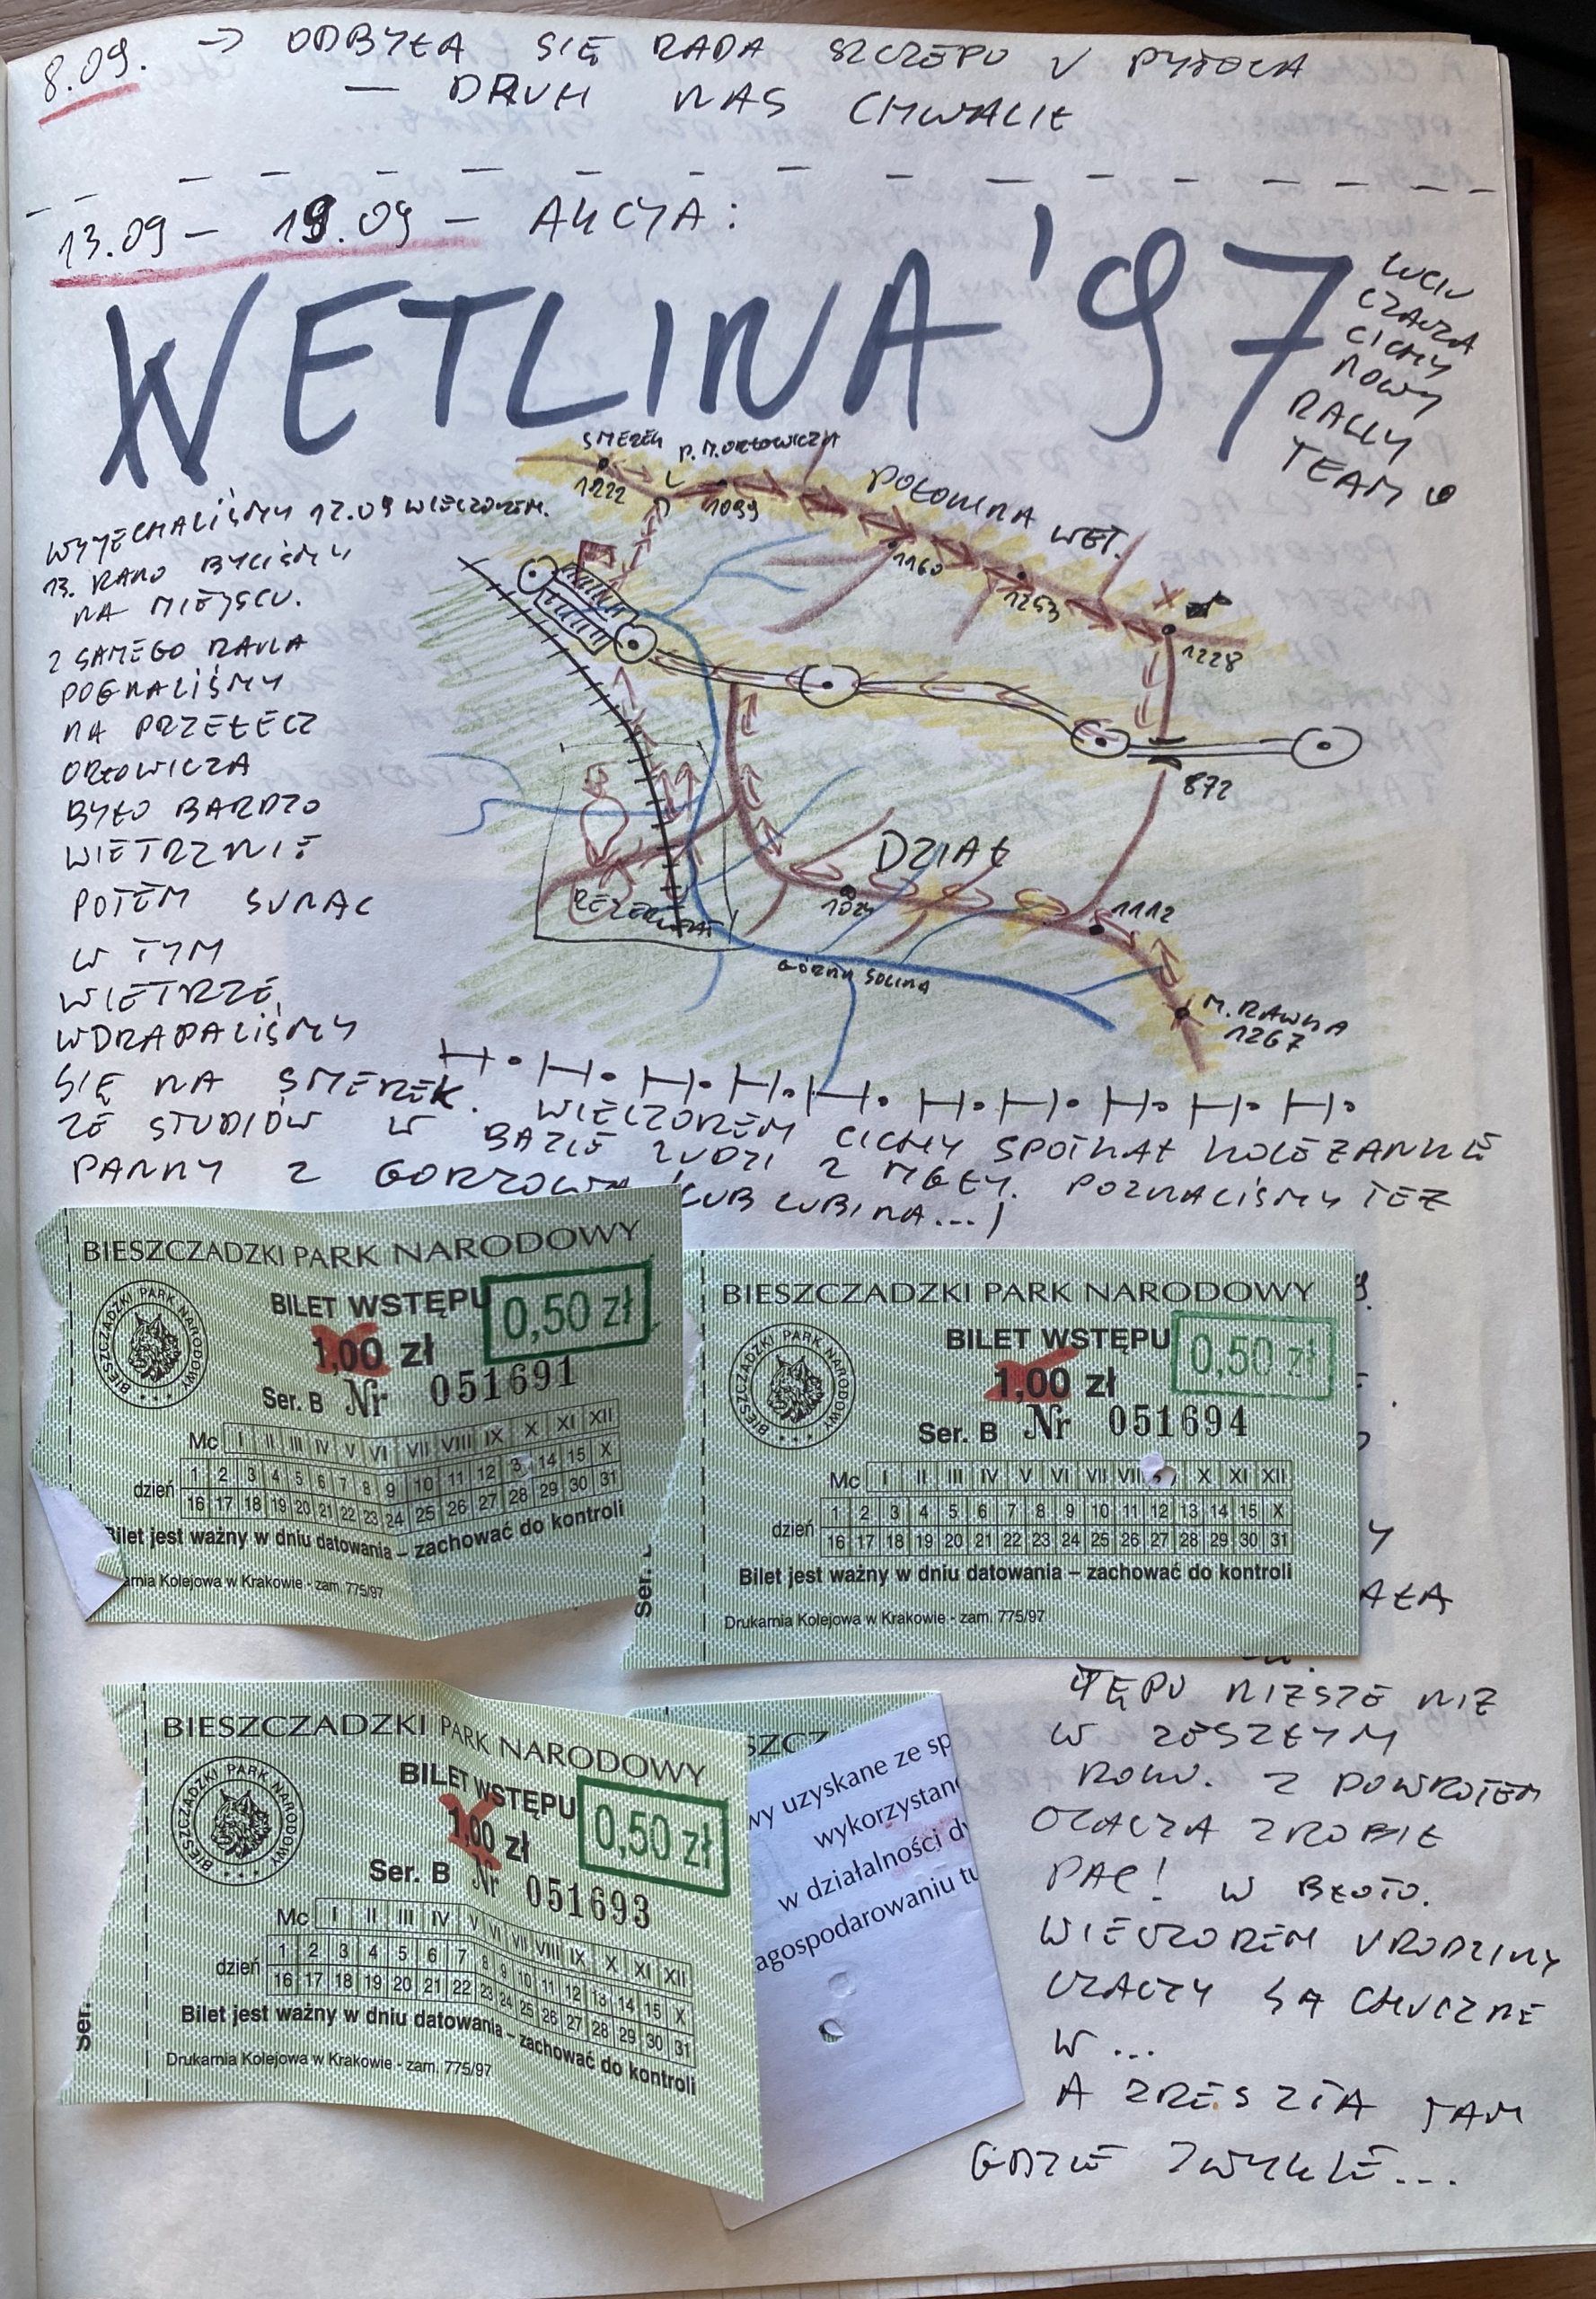 8.09. → ODBYŁA SIĘ RADA SZCZEPU U PYTOŁA
— DRUH NAS CHWALIŁ
13.09 – 19.09 – AKCJA:
WETLINA '97
LUCIU
CZACZA
CICHY
NOWY
RALLY
TEAM
SMEREK
1222
P. M. ORŁOWICZA
1099
POŁONINA WET.
1160
1253
1228
872
DZIAŁ
1024
1112
REZERWAT
GÓRNA SOLINA
M. RAWKA
1267
WYJECHALIŚMY 12.09 WIECZOREM.
13. RANO BYLIŚMY
NA MIEJSCU.
Z SAMEGO RANA
POGNALIŚMY
NA PRZEŁĘCZ
ORŁOWICZA
BYŁO BARDZO
WIETRZNIE
POTEM
W TYM
WIETRZE,
WDRAPALIŚMY
SIĘ NA SMEREK. WIECZOREM CICHY SPOTKAŁ KOLEŻANKĘ
ZE STUDIÓW W BAZIE LUDZI Z MGŁY. POZNALIŚMY TEŻ
PANNY Z GORZOWA (LUB LUBINA...)
BIESZCZADZKI PARK NARODOWY
BIESZCZADZKI PARK NARODOWY
BILET WSTĘPU
0,50 zł
1,00 zł
Ser. B Nr 051691
Mc I II III IV V VI VII VIII IX X XI XII
dzień 1 2 3 4 5 6 7 8 9 10 11 12 3 14 15 X
16 17 18 19 20 21 22 23 24 25 26 27 28 29 30 31
Bilet jest ważny w dniu datowania – zachować do kontroli
arnia Kolejowa w Krakowie - zam. 775/97
BIESZCZADZKI PARK NARODOWY
BIESZCZADZKI PARK NARODOWY
BILET WSTĘPU
0,50 zł
1,00 zł
Ser. B Nr 051694
Mc I II III IV V VI VII VII X XI XII
dzień 1 2 3 4 5 6 7 8 9 10 11 12 13 14 15 X
16 17 18 19 20 21 22 23 24 25 26 27 28 29 30 31
Bilet jest ważny w dniu datowania – zachować do kontroli
Drukarnia Kolejowa w Krakowie - zam. 775/97
Ser.
AŁA
BIESZCZADZKI PARK NARODOWY
BIESZCZADZKI PARK NARODOWY
BILET WSTĘPU
0,50 zł
1,00 zł
Ser. B Nr 051693
Mc I II III IV V VI VII VIII IX X XI XII
dzień 1 2 3 4 5 6 7 8 9 10 11 12 13 14 15 X
16 17 18 19 20 21 22 23 24 25 26 27 28 29 30 31
Bilet jest ważny w dniu datowania – zachować do kontroli
Drukarnia Kolejowa w Krakowie - zam. 775/97
Ser.
SZCZ
wy uzyskane ze sp
wykorzystan
w działalności dy
agospodarowaniu tu
TĘPU NIŻSZE NIŻ
W ZESZŁYM
ROKU. Z POWROTEM
CZACZA ZROBIŁ
PAC! W BŁOTO.
WIECZOREM URODZINY
CZACZY SĄ HUCZNE
W...
A ZRESZTĄ TAM
GDZIE ZWYKLE...